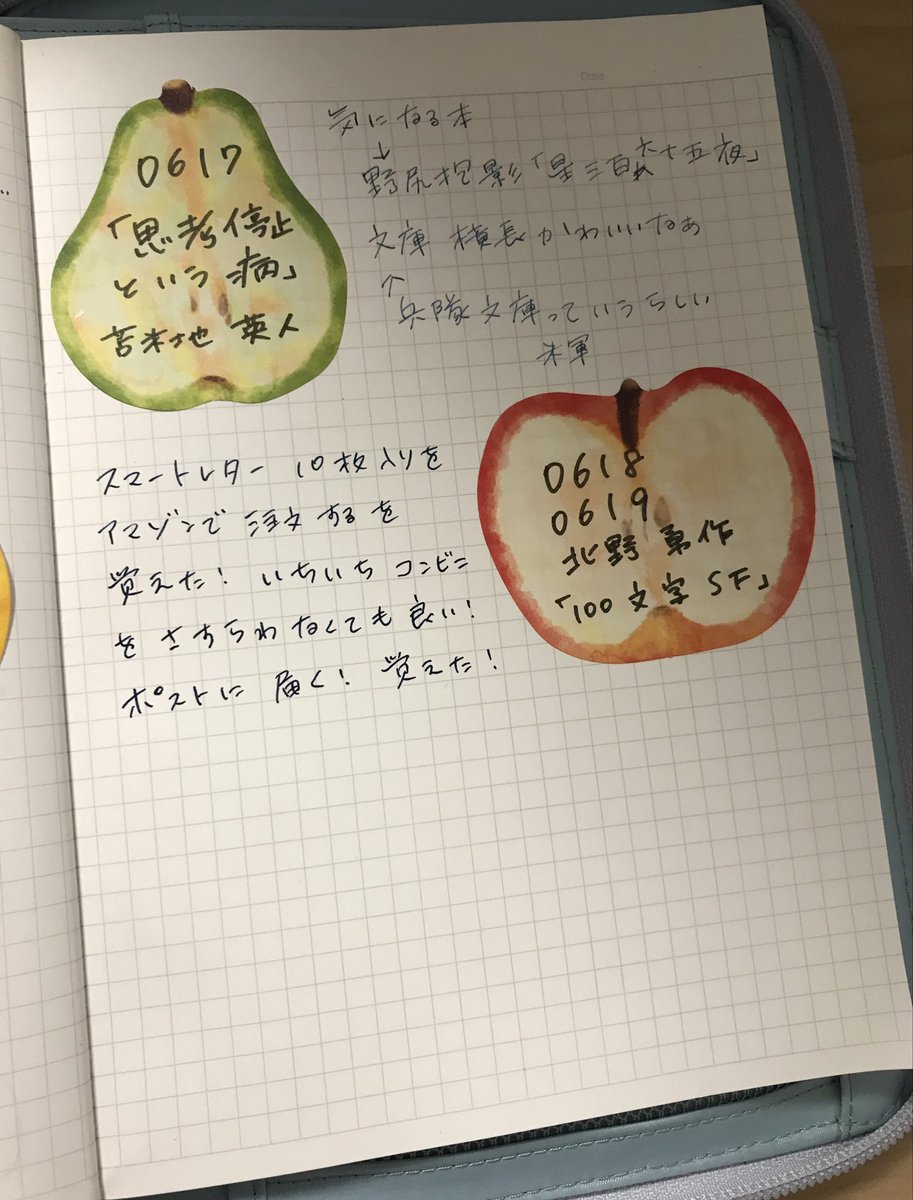 Date
0617
「思考停止
という病」
苫米地 英人
気になる本
↓
野尻抱影「星三百六十五夜」
文庫 横長 かわいいなぁ
↑
兵隊文庫っていうらしい
米軍
スマートレター 10枚入りを
アマゾンで 注文するを
覚えた! いちいち コンビニ
を さすらわなくても良い!
ポストに 届く! 覚えた!
0618
0619
北野 勇作
「100文字SF」